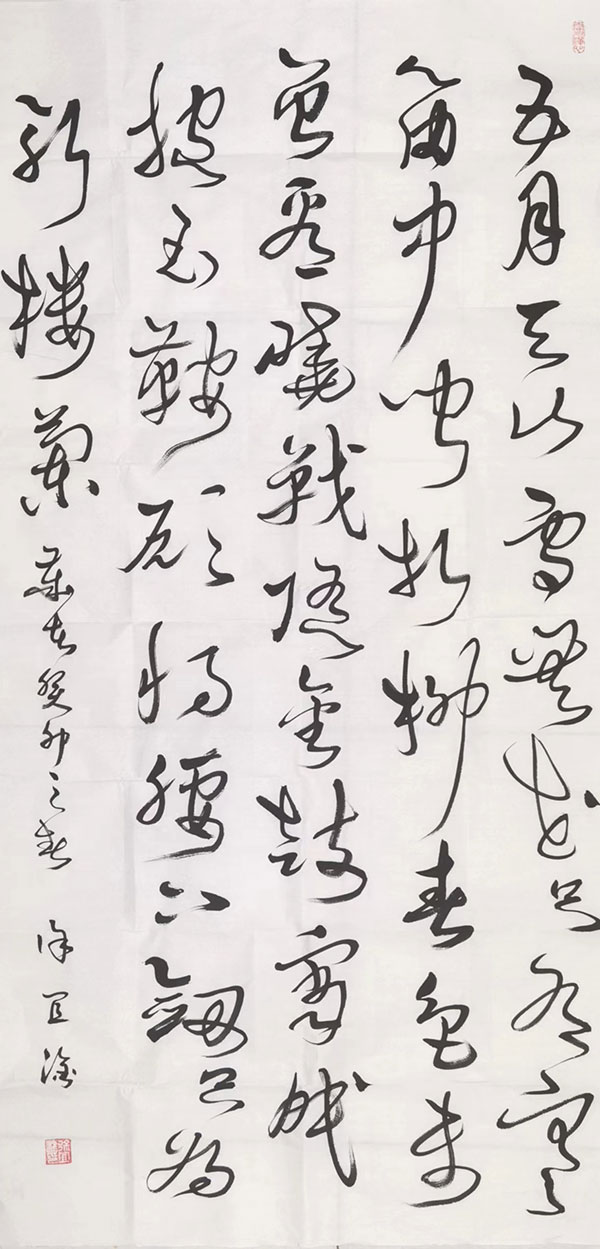 五月天山雪無花只有寒
笛中聞折柳春色未
曾看曉戰隨金鼓宵眠
抱玉鞍願將腰下劍只為
斬樓蘭 歲在癸卯之春 徐